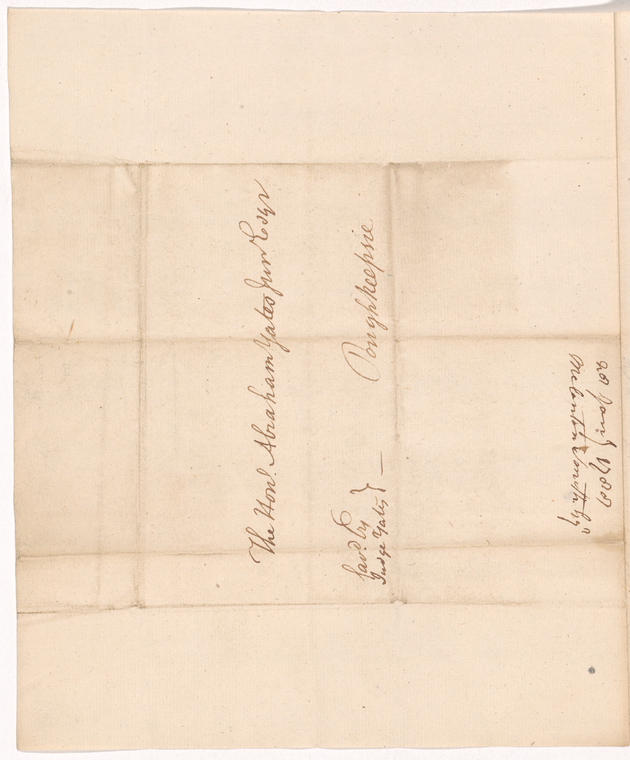 The Honl. Abraham Yates Junr Esqr
Poughkeepsie
favd. by
Judge Yates
20 Jany 1788
Melancton Smith